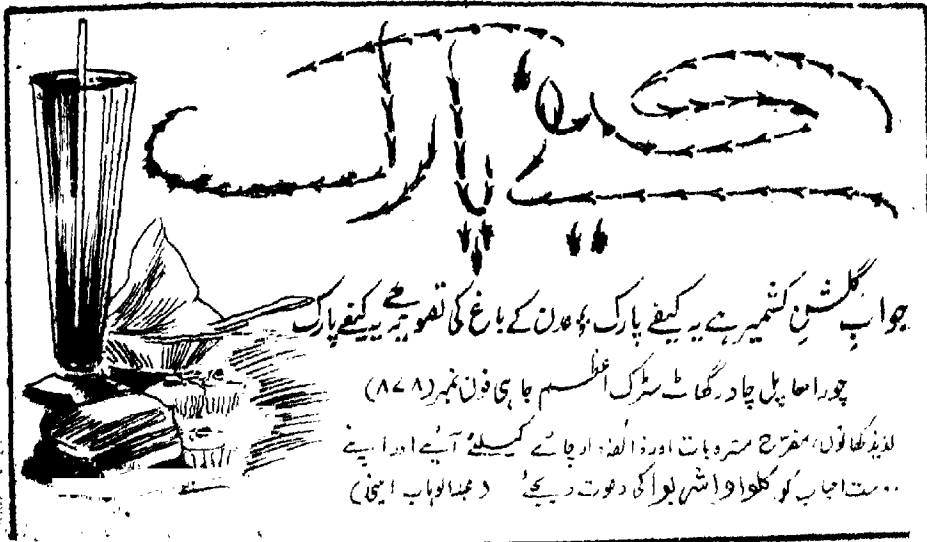 کیفے پارک
جوابِ گلشنِ کشمیر ہے یہ کیفے پارک ؛ عدن کے باغ کی تصویر ہے یہ کیفے پارک
چوراھا پل چادر گھاٹ سڑک اعظم جاہی فون نمبر (۸۷۸)
لذیذ کھانوں، مفرّح مشروبات اور ذائقہ دار چائے کیلئے آئیے اور اپنے
دوست احباب کو کلوا واشربوا کی دعوت دیجئے (عبدالوہاب)